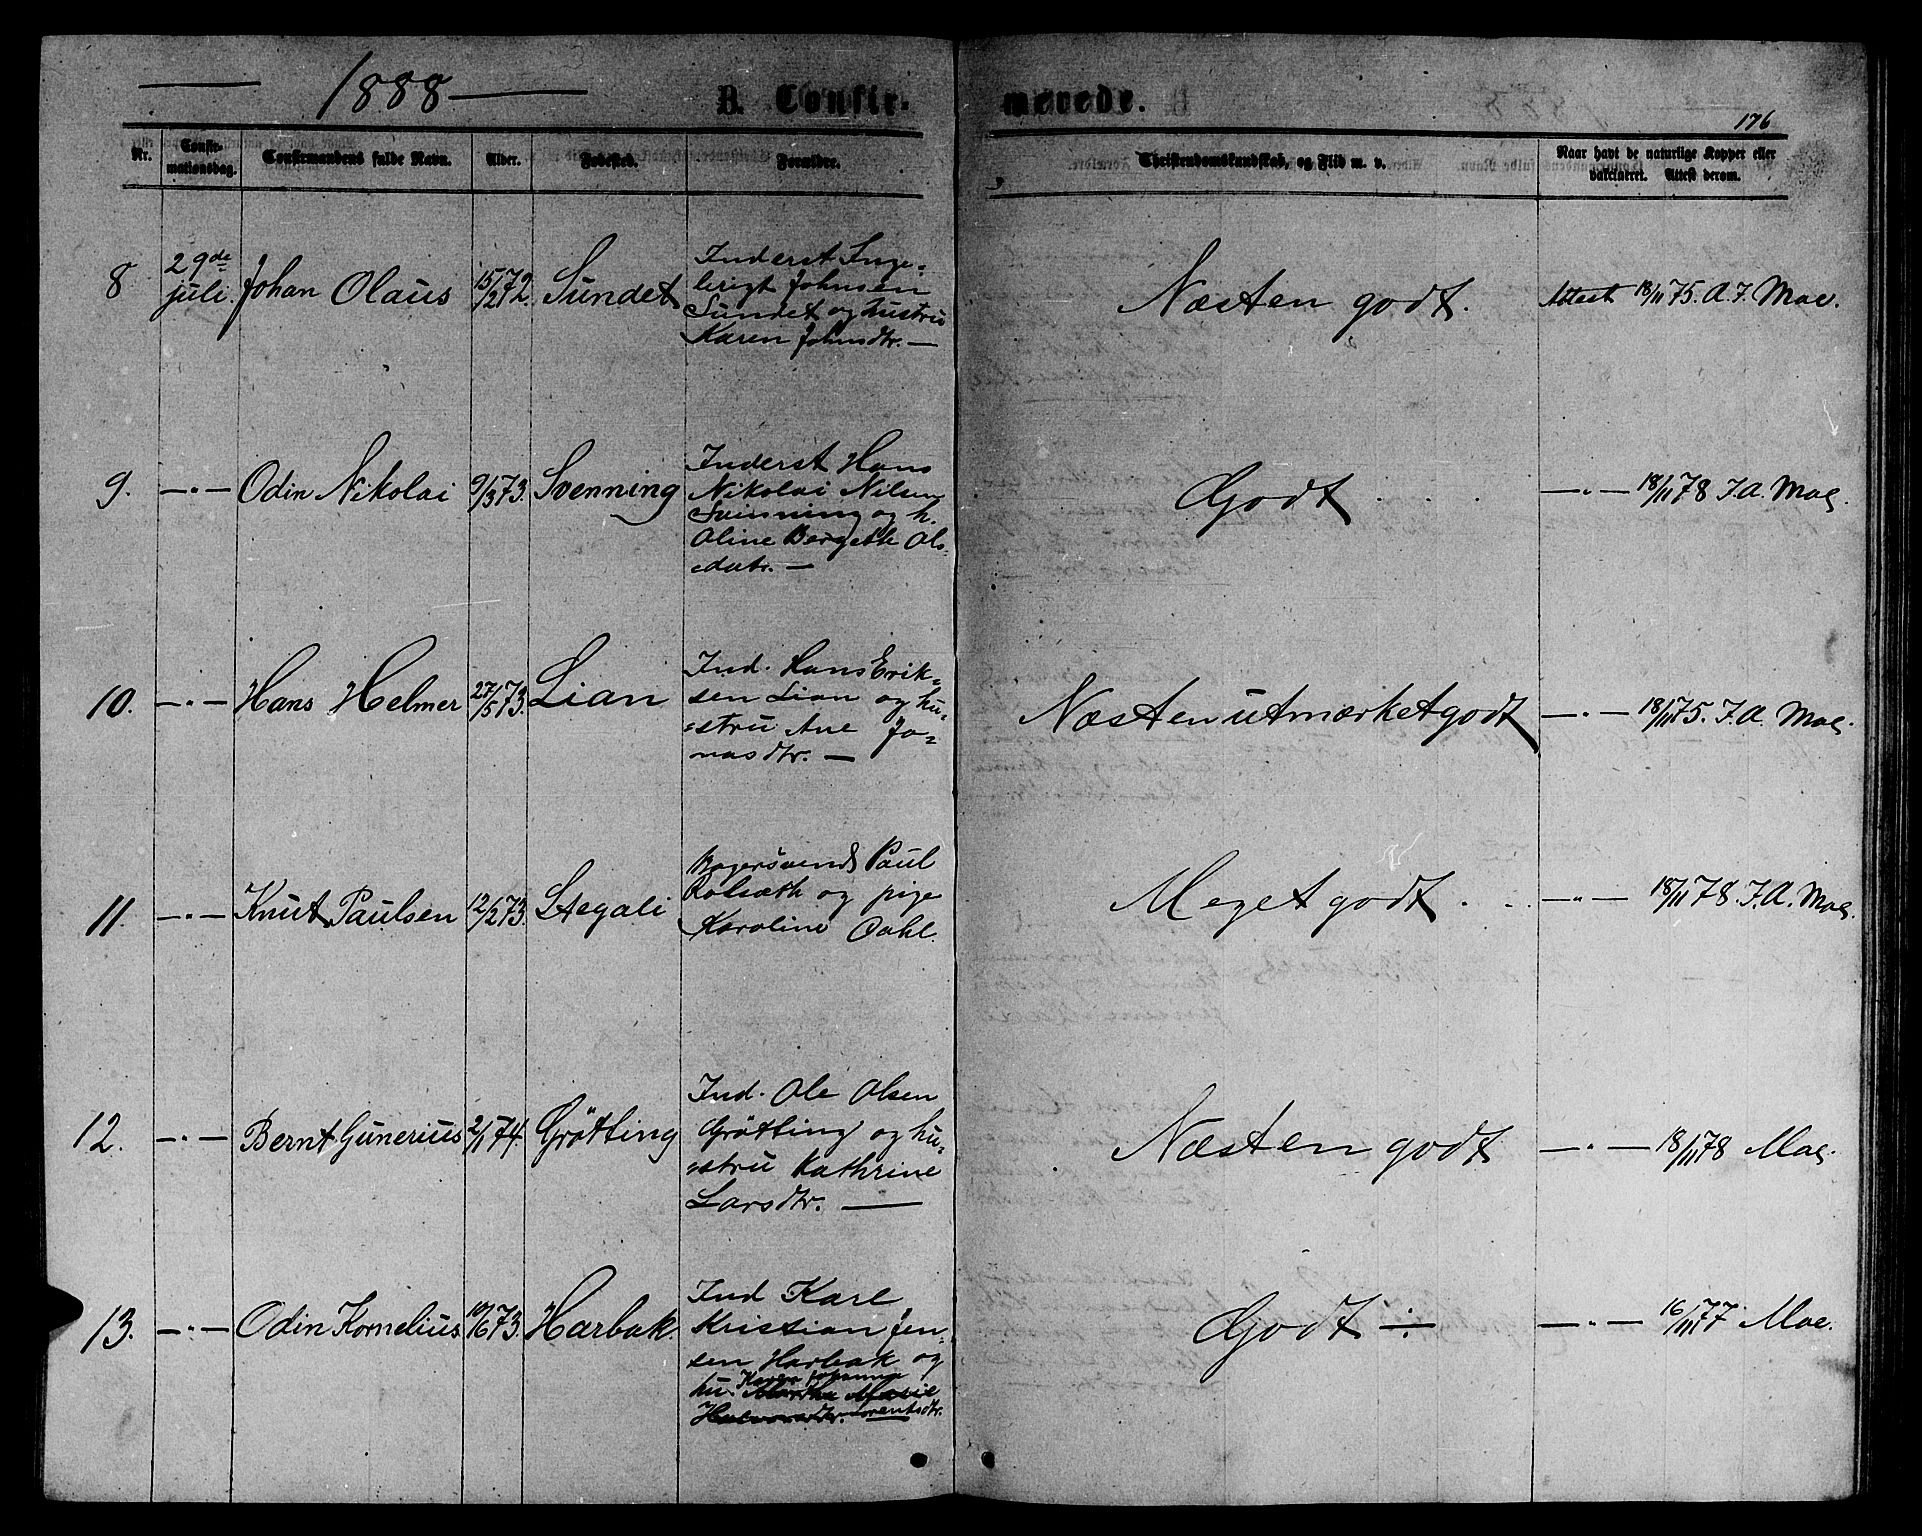 1888
B. Confirmerede.
176
Nr.
Confirmationsdag.
Confirmandens fulde Navn.
Alder.
Fødested.
Forældre.
Christendomskundskab, og Flid m. v.
Naar havt de naturlige Kopper eller
vakcineret. Attest derom.
8
29de
juli.
Johan Olaus
15/12 72.
Sundet
Inderst Inge-
brigt Johnsen
Sundet og hustru
Karen Johnsdtr. —
Næsten godt.
Attest 18/11 75. A. J. Moe.
9.
—"—
Odin Nikolai
9/3 73.
Svenning
Inderst Hans
Nikolai Nilsen
Svinning og h.
Oline Bergeth Ols-
datr. —
Godt
—"— 18/11 78 J. A. Moe.
10.
—"—
Hans Helmer
27/5 73.
Lian
Ind. Hans Erik-
sen Lian og hu-
stru Ane Jo-
nasdtr. —
Næsten utmærket godt
—"— 18/11 75. J. A. Moe.
11.
—"—
Knut Paulsen
12/2 73.
Stegali
Bagersvend Paul
Rolseth og pige
Karoline Dahl.
Meget godt
—"— 18/11 78. J. A. Moe.
12.
—"—
Bernt Gunerius
2/1 74.
Grötting
Ind. Ole Olsen
Grötting og hu-
stru Kathrine
Larsdtr. —
Næsten godt
—"— 18/11 78 Moe.
13.
—"—
Odin Kornelius
10/6 73.
Harbak.
Ind Karl
Kristian Jen-
sen Harbak og
hu. Karen Johanna
Martha Marie
Halvorsdtr. Lorentsdtr.
Godt ÷
—"— 16/11 77 Moe.